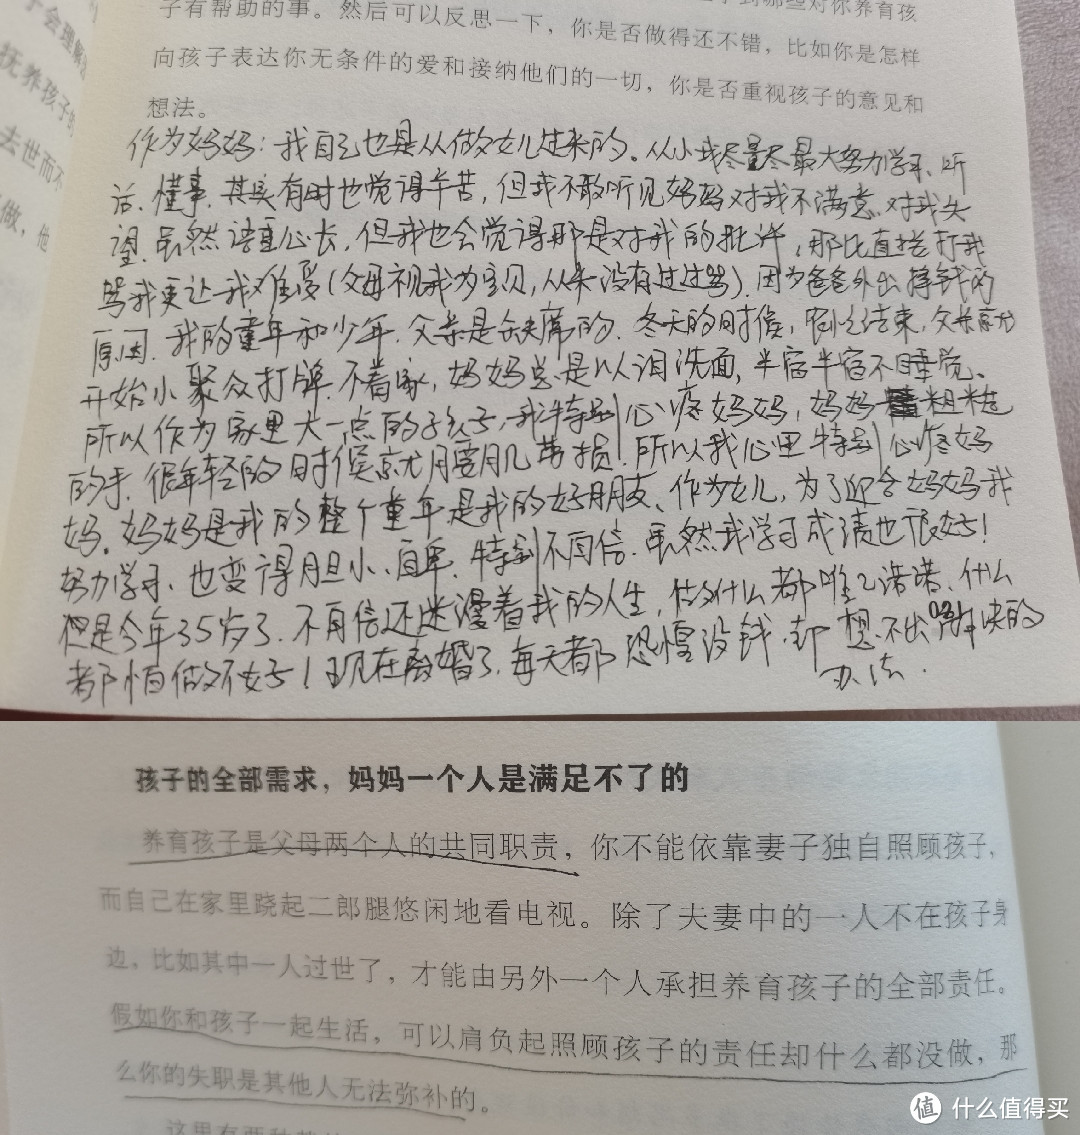 子会理解
抚养孩子的
去世而不
做，他
子有帮助的事。然后可以反思一下，你是否做得还不错，比如你是怎样
向孩子表达你无条件的爱和接纳他们的一切，你是否重视孩子的意见和
想法。
作为妈妈：我自己也是从做女儿过来的。从小我尽量尽最大努力学习、听
话、懂事，其实有时也觉得辛苦，但我不敢听见妈妈对我不满意、对我失
望，虽然语重心长，但我也会觉得那是对我的批评，那比直接打我
骂我更让我难受（父母视我为宝贝，从来没有过过骂）。因为爸爸外出挣钱的
原因，我的童年和少年，父亲是缺席的，冬天的时候，结束，父亲
开始小聚众打牌，不着家，妈妈总是以泪洗面，半宿半宿不睡觉。
所以作为家里大一点的孩子，我特别心疼妈妈，妈妈粗糙
的手，很年轻的时候就腰肌劳损！所以我心里特别心疼妈
妈。妈妈是我的整个童年，是我的好朋友、作为女儿，为了迎合妈妈我
努力学习、也变得胆小、自卑、特别不自信，虽然我学习成绩也很好！
但是今年35岁了，不自信还迷漫着我的人生，做什么都唯唯诺诺、什么
都怕做不好！现在离婚了，每天都恐惶没钱，却想不出解决的
办法．
孩子的全部需求，妈妈一个人是满足不了的
养育孩子是父母两个人的共同职责，你不能依靠妻子独自照顾孩子，
而自己在家里跷起二郎腿悠闲地看电视。除了夫妻中的一人不在孩子身
边，比如其中一人过世了，才能由另外一个人承担养育孩子的全部责任。
假如你和孩子一起生活，可以肩负起照顾孩子的责任却什么都没做，那
么你的失职是其他人无法弥补的。
这里有两种
值 什么值得买